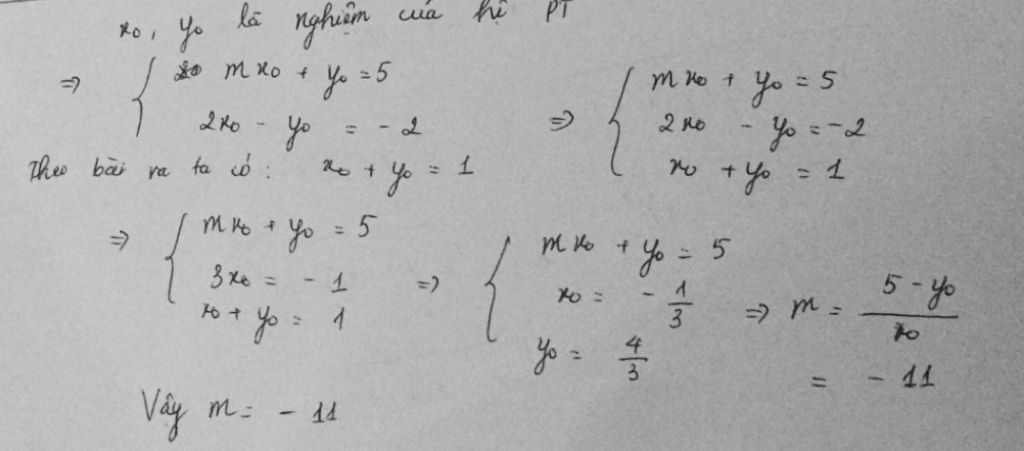 x₀, y₀ là nghiệm của hệ PT
⇒ { m x₀ + y₀ = 5
2x₀ - y₀ = - 2
Theo bài ra ta có: x₀ + y₀ = 1
⇒ { m x₀ + y₀ = 5
2x₀ - y₀ = - 2
x₀ + y₀ = 1
⇒ { m x₀ + y₀ = 5
3x₀ = - 1
x₀ + y₀ = 1
⇒ { m x₀ + y₀ = 5
x₀ = - 1/3
y₀ = 4/3
⇒ m = (5 - y₀)/x₀
= - 11
Vậy m = - 11